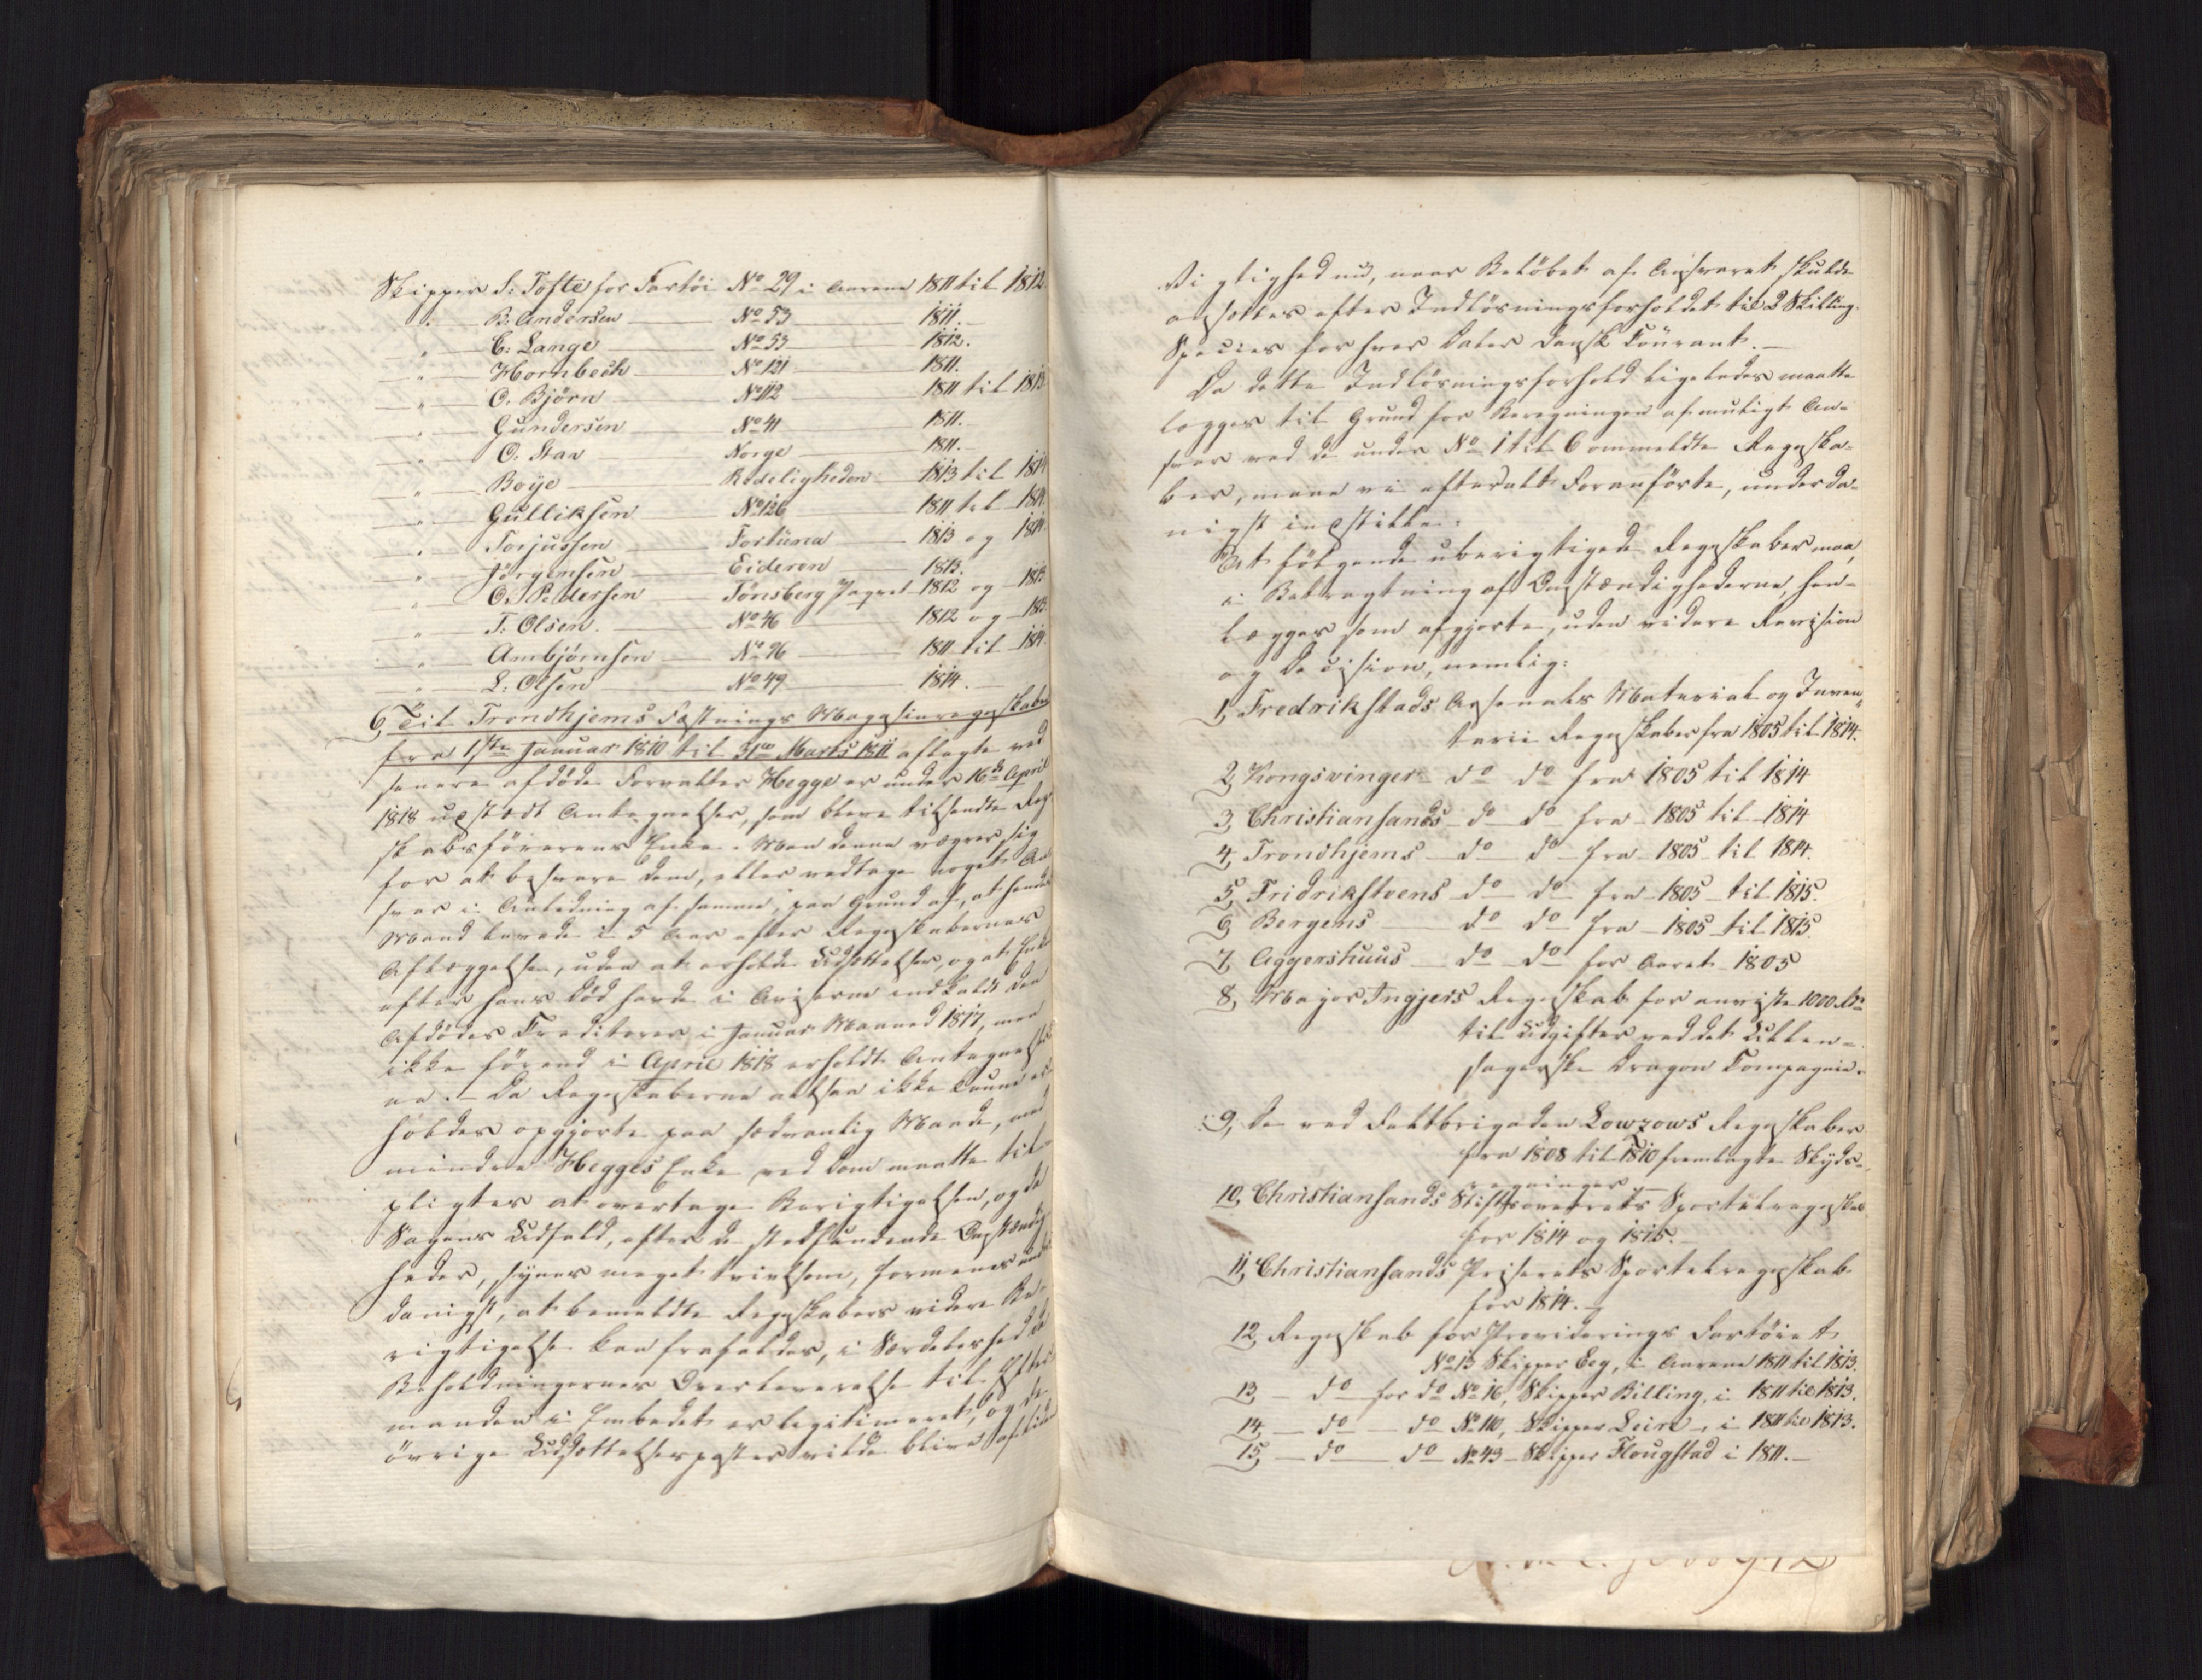 Skipper S: Tofte for Fartöi No 29 i Aarene 1811 til 1812
" — B: Andersen — No 53 — 1811.
" — C: Lange — No 53 — 1812.
" — Hornbech — No 121 — 1811.
" — O. Björn — No 112 — 1811 til 1813
" — Gundersen — No 41 — 1811.
" — O. Stax — Norge — 1811.
" — Boye — Redeligheden — 1813 til 1814
" — Gulliksen — No 126 — 1811 til 1814.
" — Torjussen — Fortuna — 1813 og 1814.
" — Jörgensen — Eideren — 1813.
" — O. Pedersen — Tönsberg Paquet — 1812 og 1813
" — T: Olsen. — No 46 — 1812 og 1813
" — Arnbjörnsen — No 96 — 1811 til 1814.
" — L: Olsen — No 49 — 1814.
6, Til Trondhjems Fæstnings Magasinregnskaber
fra 1ste Januar 1810 til 31te Marts 1811 aflagte ved
senere afdöde Forvalter Hegge er under 16de April
1818 udstædt Antegnelser, som bleve tilsendte Regn-
skabsförerens Enke. Men denne vægrer sig
for at besvare dem, eller vedtage noget An-
svar i Anledning af samme, paa Grund af, at hendes
Mand levede i 5 Aar efter Regnskabernes
Aflæggelse, uden at erholde Udsættelser, og at Enken
efter hans Död havde i Aviserne indkaldt den
Afdödes Creditorer i Januar Maaned 1817, men
ikke förend i April 1818 erholdt Antegnelser-
ne. — Da Regnskaberne altsaa ikke kunne er-
holdes opgjorte paa sædvanlig Maade, med
mindre Hegges Enke ved Dom maatte til-
pligtes at overtage Berigtigelsen, og da
Sagens Udfald, efter de stedfundende Omstændig-
heder, synes meget tvivlsom, formenes under-
danigst, at bemeldte Regnskabers videre Be-
rigtigelse kan frafaldes, i Særdeleshed da
Beholdningernes Overleverelse til Efter-
manden i Embedet er legitimeret, og de
övrige Udsættelsesposter vilde blive af liden
Vigtighed, naar Belöbet af Ansvaret skulde
ansættes efter Indlösningsforholdet til 2 Skilling
Species for hver Daler Dansk Courant. —
Da dette Indlösningsforhold ligeledes maatte
lægges til Grund for Beregningen af muligt An-
svar ved de under No 1 til 6 ommeldte Regnska-
ber, maae vi efter alt Foranförte, underda-
nigst indstille:
At fölgende uberigtigede Regnskaber maa,
i Betragtning af Omstændighederne, hen-
lægges som afgjorte, uden videre Revision
og Decision, nemlig:
1, Fredrikstads Arsenals Material og Inven-
tarii Regnskaber fra 1805 til 1814.
2, Kongsvinger do do fra 1805 til 1814
3, Christiansands do do fra 1805 til 1814
4, Trondhjems do do fra 1805 til 1814.
5, Fridrikstvens do do fra 1805 til 1815.
6, Bergens do do fra 1805 til 1815.
7, Aggershuus do do for Aaret 1805
8, Major Ingjers Regnskab for anviste 1000 Rd
til Udgifter ved det Ullen-
sagerske Dragon Compagnie.
9, De ved Feltbrigaden Lowzows Regnskaber
fra 1808 til 1810 fremlagte Skyds-
regninger
10, Christiansands Stiftsoverrets Sportelregnskab
for 1814 og 1815. —
11, Christiansands Priserets Sportelregnskab
for 1814. —
12, Regnskab for Provideringsfartöiet
No 13 Skipper Eeg, i Aarene 1811 til 1813.
13, — do for do No 16, Skipper Billing, i 1811 til 1813.
14, — do — do No 110, Skipper Leire, i 1811 til 1813.
15, — do — do No 43 Skipper Flougstad i 1811. —